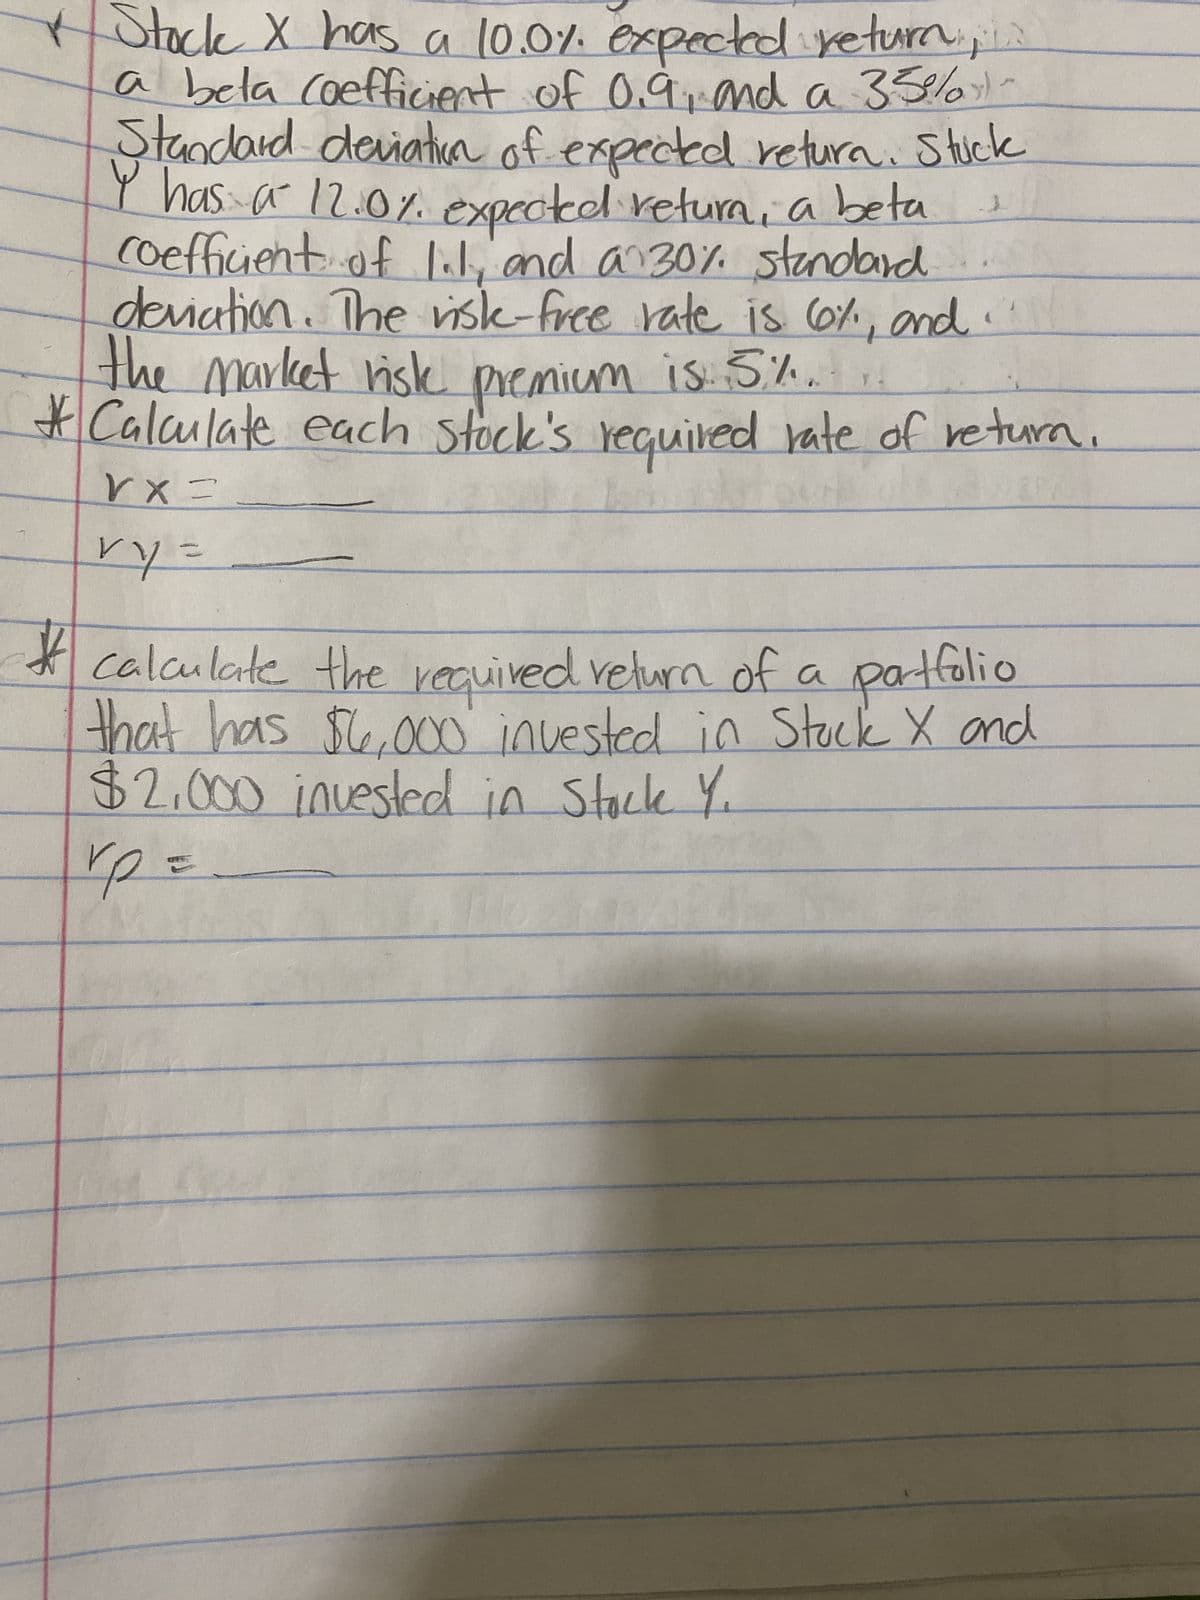 * Stock X has a 10.0% expected return,
a beta coefficient of 0.9, and a 35%
Standard deviation of expected return. Stock
Y has a 12.0% expected return, a beta
coefficient of 1.1, and a 30% standard
deviation. The risk-free rate is 6%, and
the market risk premium is 5%.
* Calculate each stock's required rate of return.
rx = ____
ry = ____
* calculate the required return of a portfolio
that has $6,000 invested in Stock X and
$2,000 invested in Stock Y.
rp = ____